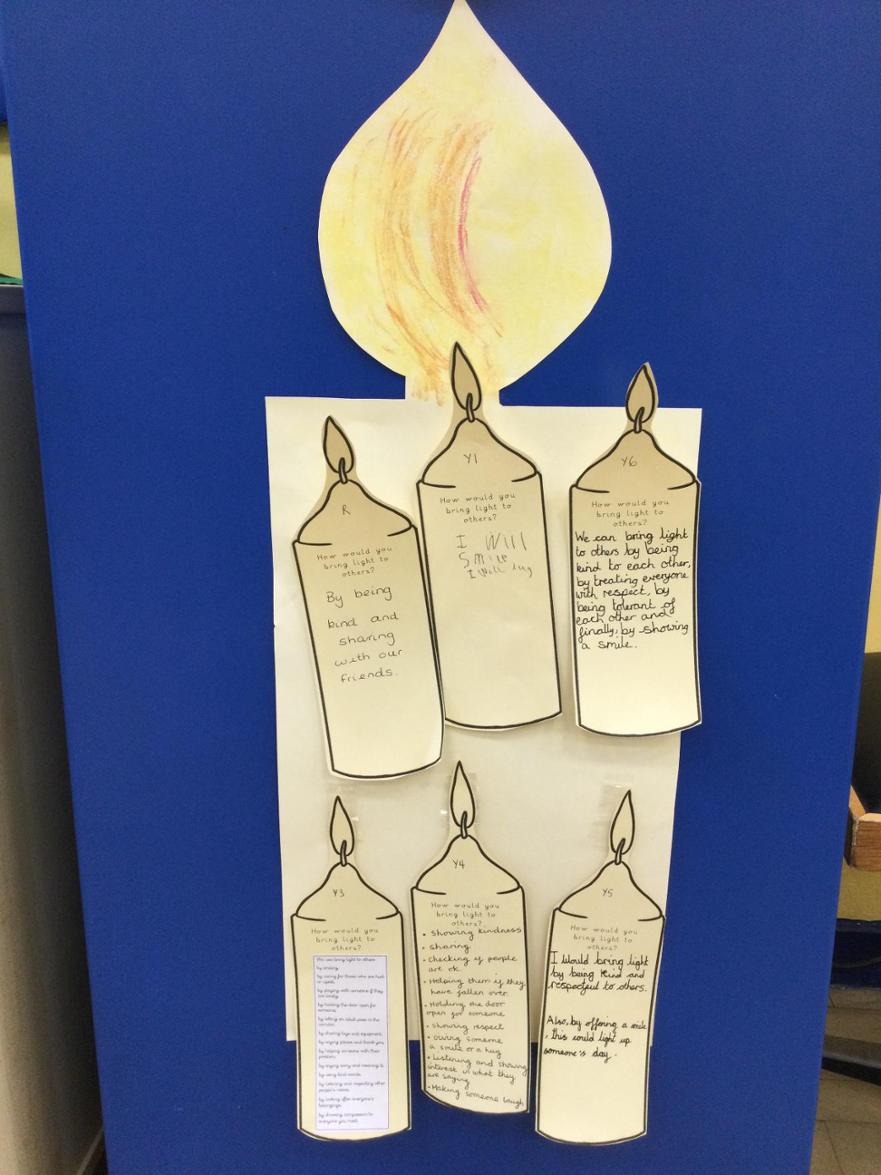 R
How would you
bring light to
others?
By being
kind and
sharing
with our
friends.
Y1
How would you
bring light to
others?
I will
Smile
I will hug
Y6
How would you
bring light to
others?
We can bring light
to others by being
kind to each other,
by treating everyone
with respect, by
being tolerant of
each other and
finally, by showing
a smile.
Y3
How would you
bring light to
others?
We can bring light to others
by smiling.
by caring for those who are hurt
or upset.
by playing with someone if they
are lonely.
by holding the door open for
someone.
by letting an adult pass in the
corridor.
by sharing toys and equipment.
by saying please and thank you.
by helping someone with their
problem.
by saying sorry and meaning it.
by using kind words.
by listening and respecting other
people's views.
by looking after everyone's
belongings.
by showing compassion to
everyone you meet.
Y4
How would you
bring light to
others?
• Showing kindness
• Sharing
• Checking if people
are ok
• Helping them if they
have fallen over.
• Holding the door
open for someone
• Showing respect
• Giving someone
a smile or a hug
• Listening and showing
interest in what they
are saying
• Making someone laugh
Y5
How would you
bring light to
others?
I would bring light
by being kind and
respectful to others.
Also, by offering a smile
, this could light up
someone's day.